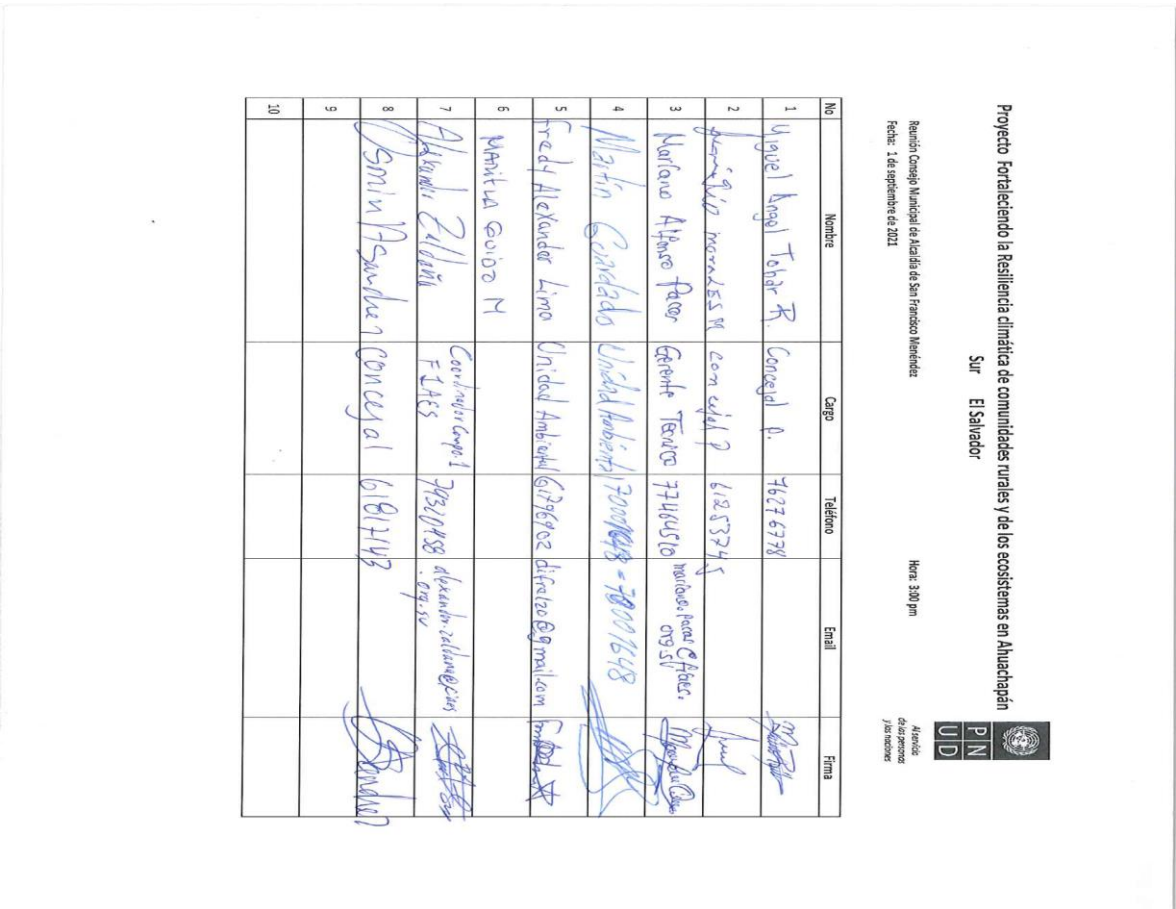 Proyecto Fortaleciendo la Resiliencia climática de comunidades rurales y de los ecosistemas en Ahuachapán
Sur El Salvador
Reunión Consejo Municipal de Alcaldía de San Francisco Menéndez
Hora: 3:00 pm
Fecha: 1 de septiembre de 2021
P N
U D
Al servicio
de las personas
y las naciones
No Nombre Cargo Teléfono Email Firma
1 Miguel Angel Tobar R. Concejal p. 76276778
2 moraLES M concejal P 612533745
3 Mariano Alfonso Pacas Gerente Tecnico 77464510 mariano.pacas@fiaes.
org.sv
4 Martín Guardado Unidad Ambiental 70001648 = 70001648
5 Fredy Alexander Lima Unidad Ambiental 61796902 difralzo@gmail.com
6 MARITZA GUIDO M
7 Alexander Zaldaña Coordinador Compo. 1
FIAES 79320458 alexander.zaldana@fiaes
.org.sv
8 Osmin Sanchez Concejal 61817143
9
10